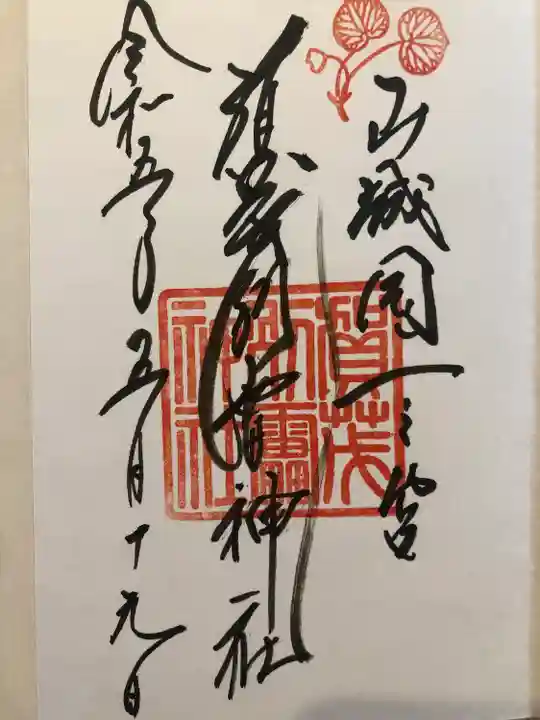 山城国一之宮
賀茂別雷神社
令和五年五月十九日
賀茂別雷神社